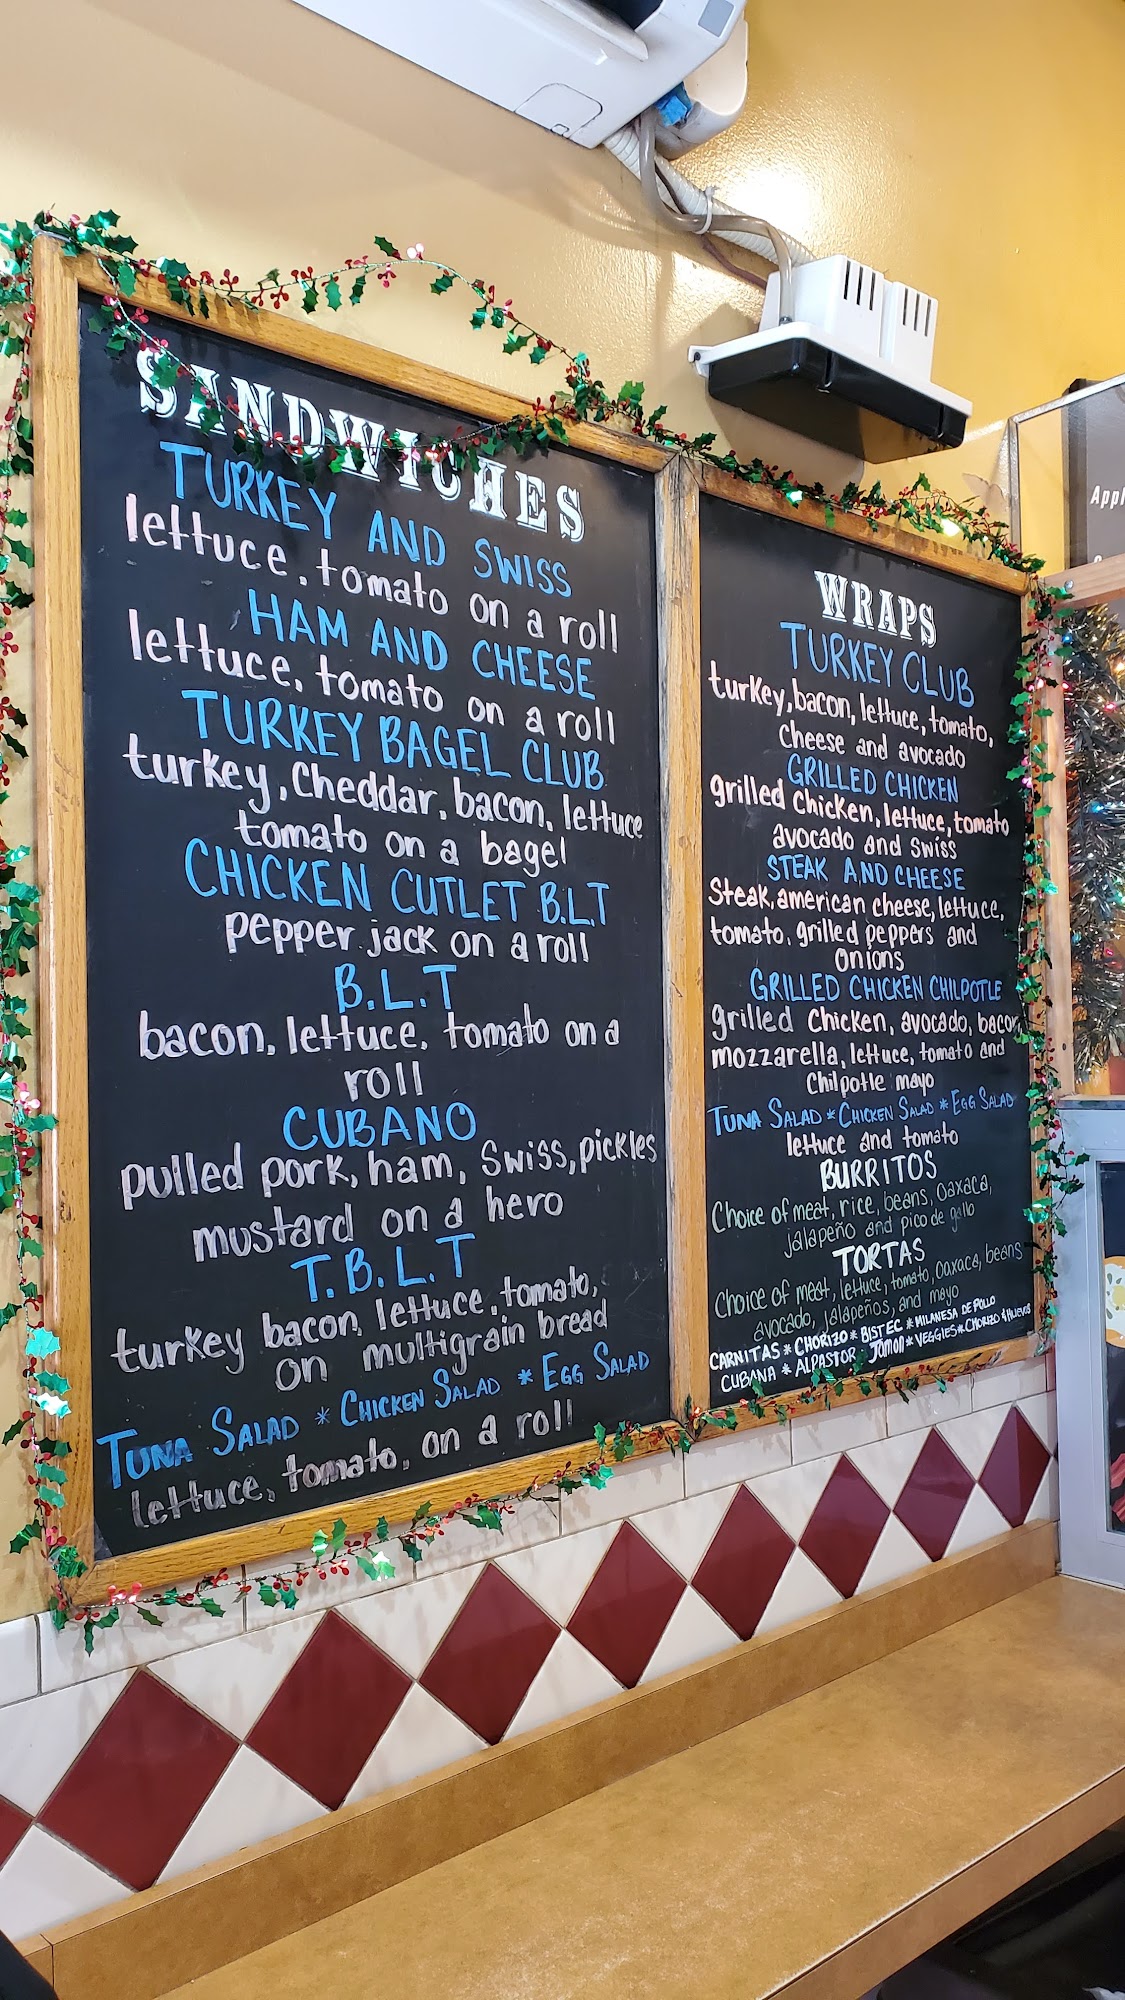 SANDWICHES
TURKEY AND SWISS
lettuce, tomato on a roll
HAM AND CHEESE
lettuce, tomato on a roll
TURKEY BAGEL CLUB
turkey, Cheddar, bacon, lettuce
tomato on a bagel
CHICKEN CUTLET B.L.T
pepper jack on a roll
B.L.T
bacon, lettuce, tomato on a
roll
CUBANO
pulled pork, ham, Swiss, pickles
mustard on a hero
T.B.L.T
turkey bacon, lettuce, tomato,
on multigrain bread
TUNA SALAD * CHICKEN SALAD * EGG SALAD
lettuce, tomato, on a roll
WRAPS
TURKEY CLUB
turkey, bacon, lettuce, tomato,
Cheese and avocado
GRILLED CHICKEN
grilled Chicken, lettuce, tomato
avocado and Swiss
STEAK AND CHEESE
Steak, american cheese, lettuce,
tomato, grilled peppers and
Onions
GRILLED CHICKEN CHILPOTLE
grilled Chicken, avocado, bacon,
mozzarella, lettuce, tomato and
Chilpotle mayo
TUNA SALAD * CHICKEN SALAD * EGG SALAD
lettuce and tomato
BURRITOS
Choice of meat, rice, beans, Oaxaca,
jalapeño and pico de gallo
TORTAS
Choice of meat, lettuce, tomato, Oaxaca, beans
avocado, jalapeños, and mayo
CARNITAS * CHORIZO * BISTEC * MILANESA DE POLLO
CUBANA * ALPASTOR · JAMON * VEGGIES * CHORIZO & HUEVOS